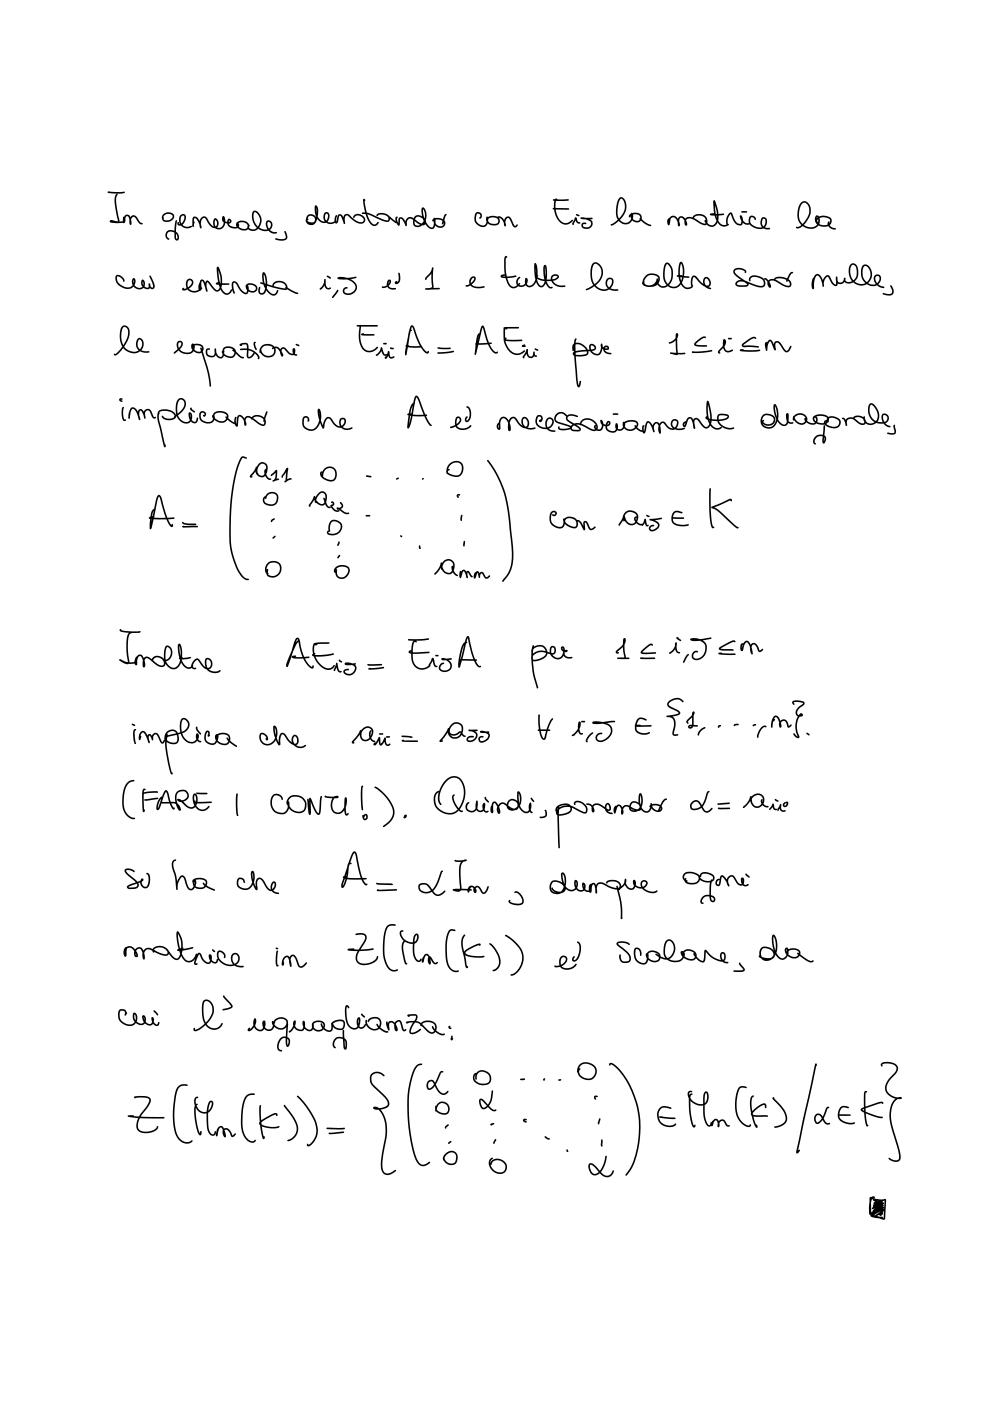 In generale, denotando con Eij la matrice la
cui entrata i,j è 1 e tutte le altre sono nulle,
le equazioni Eii A = A Eii per 1 ≤ i ≤ n
implicano che A è necessariamente diagonale,
A = ( a11 0 . . . 0
0 a22 . .
⋮ 0 . . ⋮
0 0 ann ) con aij ∈ K
Inoltre AEij = EijA per 1 ≤ i,j ≤ n
implica che aii = ajj ∀ i,j ∈ {1, ..., n}.
(FARE I CONTI!). Quindi, ponendo α = aii
si ha che A = αIn, dunque ogni
matrice in Z(Mn(K)) è scalare, da
cui l'uguaglianza:
Z(Mn(K)) = { ( α 0 . . . 0
0 α . .
⋮ ⋮ . . ⋮
0 0 α ) ∈ Mn(K) / α ∈ K }